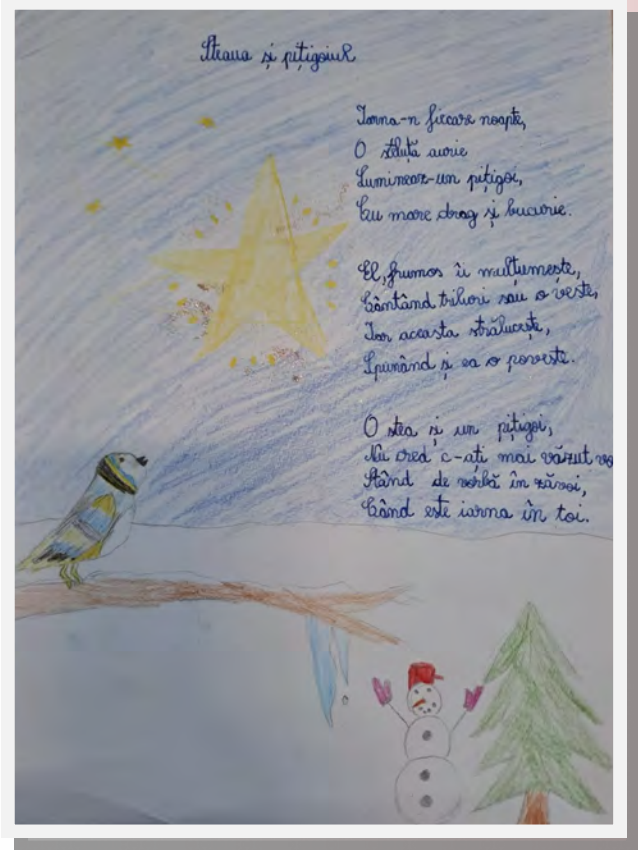 Steaua și pițigoiul
Iarna-n fiecare noapte,
O steluță aurie
Luminează-un pițigoi,
Cu mare drag și bucurie.
El, frumos îi mulțumește,
Cântând triluri sau o veste,
Iar aceasta strălucește,
Spunând și ea o poveste.
O stea și un pițigoi,
Nu cred c-ați mai văzut vo
Stând de vorbă în zăvoi,
Când este iarna în toi.